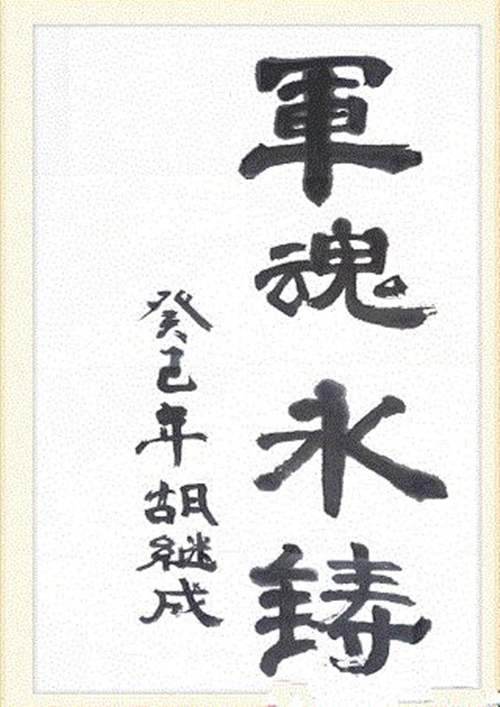 軍魂永铸
癸巳年胡继成